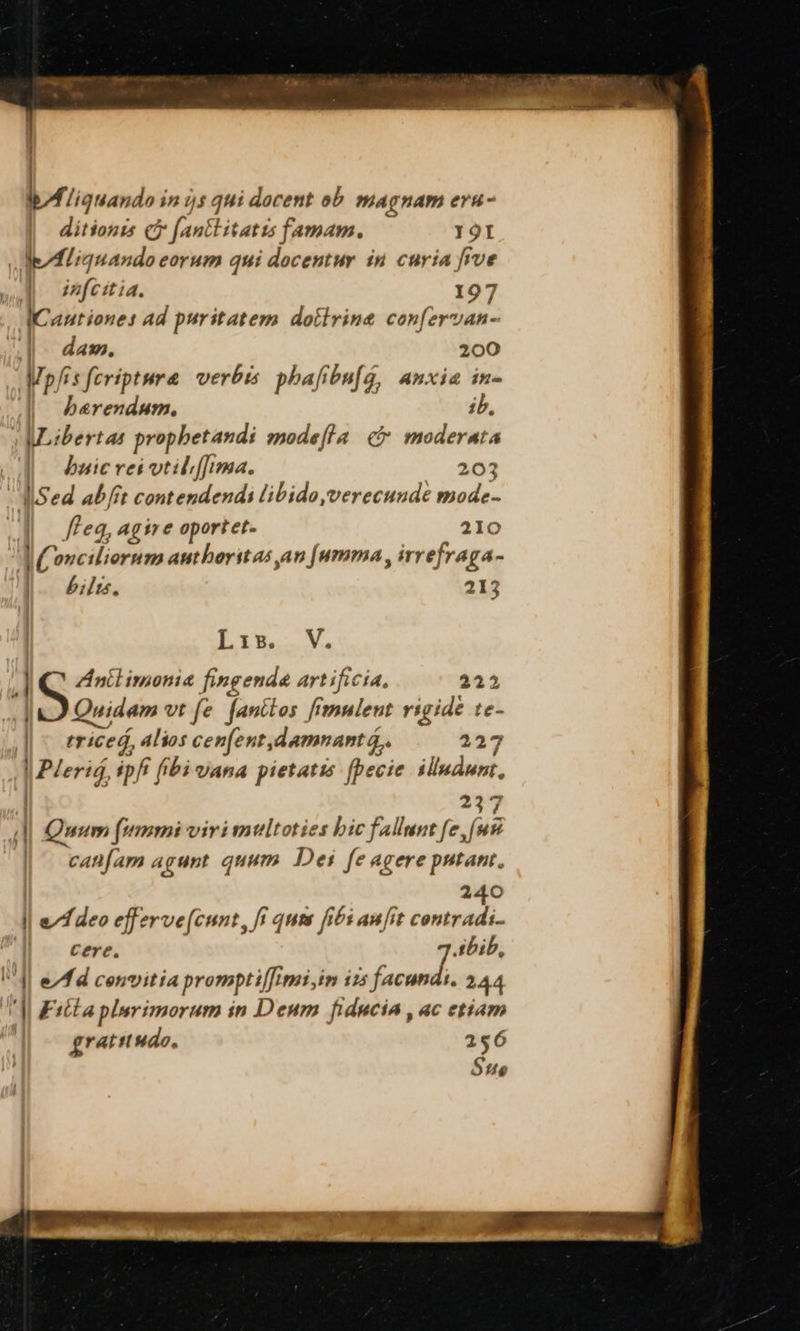 Aliquando in ijs qui docent ob magnam eru-
ditionis & ſanctitatis famam. 191
Aliquando eorum qui docentur in curia ſive
inſcitia. 197
Cautiones ad puritatem doctrinæ conſervan-
dam. 200
Vpſis ſcripturæ verbis phaſibuſq́, anxie in-
hærendum. ib.
Libertas prophetandi modeſta & moderata
huic rei vtiliſſima. 203
Sed abſit contendendi libido, verecunde mode-
ſteq́, agire oportet. 210
Conciliorum authoritas, an ſumma, irrefraga-
bilis. 213
LIB. V.
SAnctimoniæ fingendæ artificia. 222
Quidam vt ſe ſanctos ſimulent rigide te-
triceq́, alios cenſent, damnantq́,. 227
Pleriq́, ipſi ſibi vana pietatis ſpecie illudunt.
237
Quum ſummi viri multoties hic fallunt ſe, ſuā
cauſam agunt quum Dei ſe agere putant.
240
Adeo efferveſcunt, ſi quis ſibi auſit contradi-
cere. ibib,
Ad convitia promptiſſimi, in iis facundi. 244
Ficta plurimorum in Deum fiducia, ac etiam
gratitudo. 256
Suę